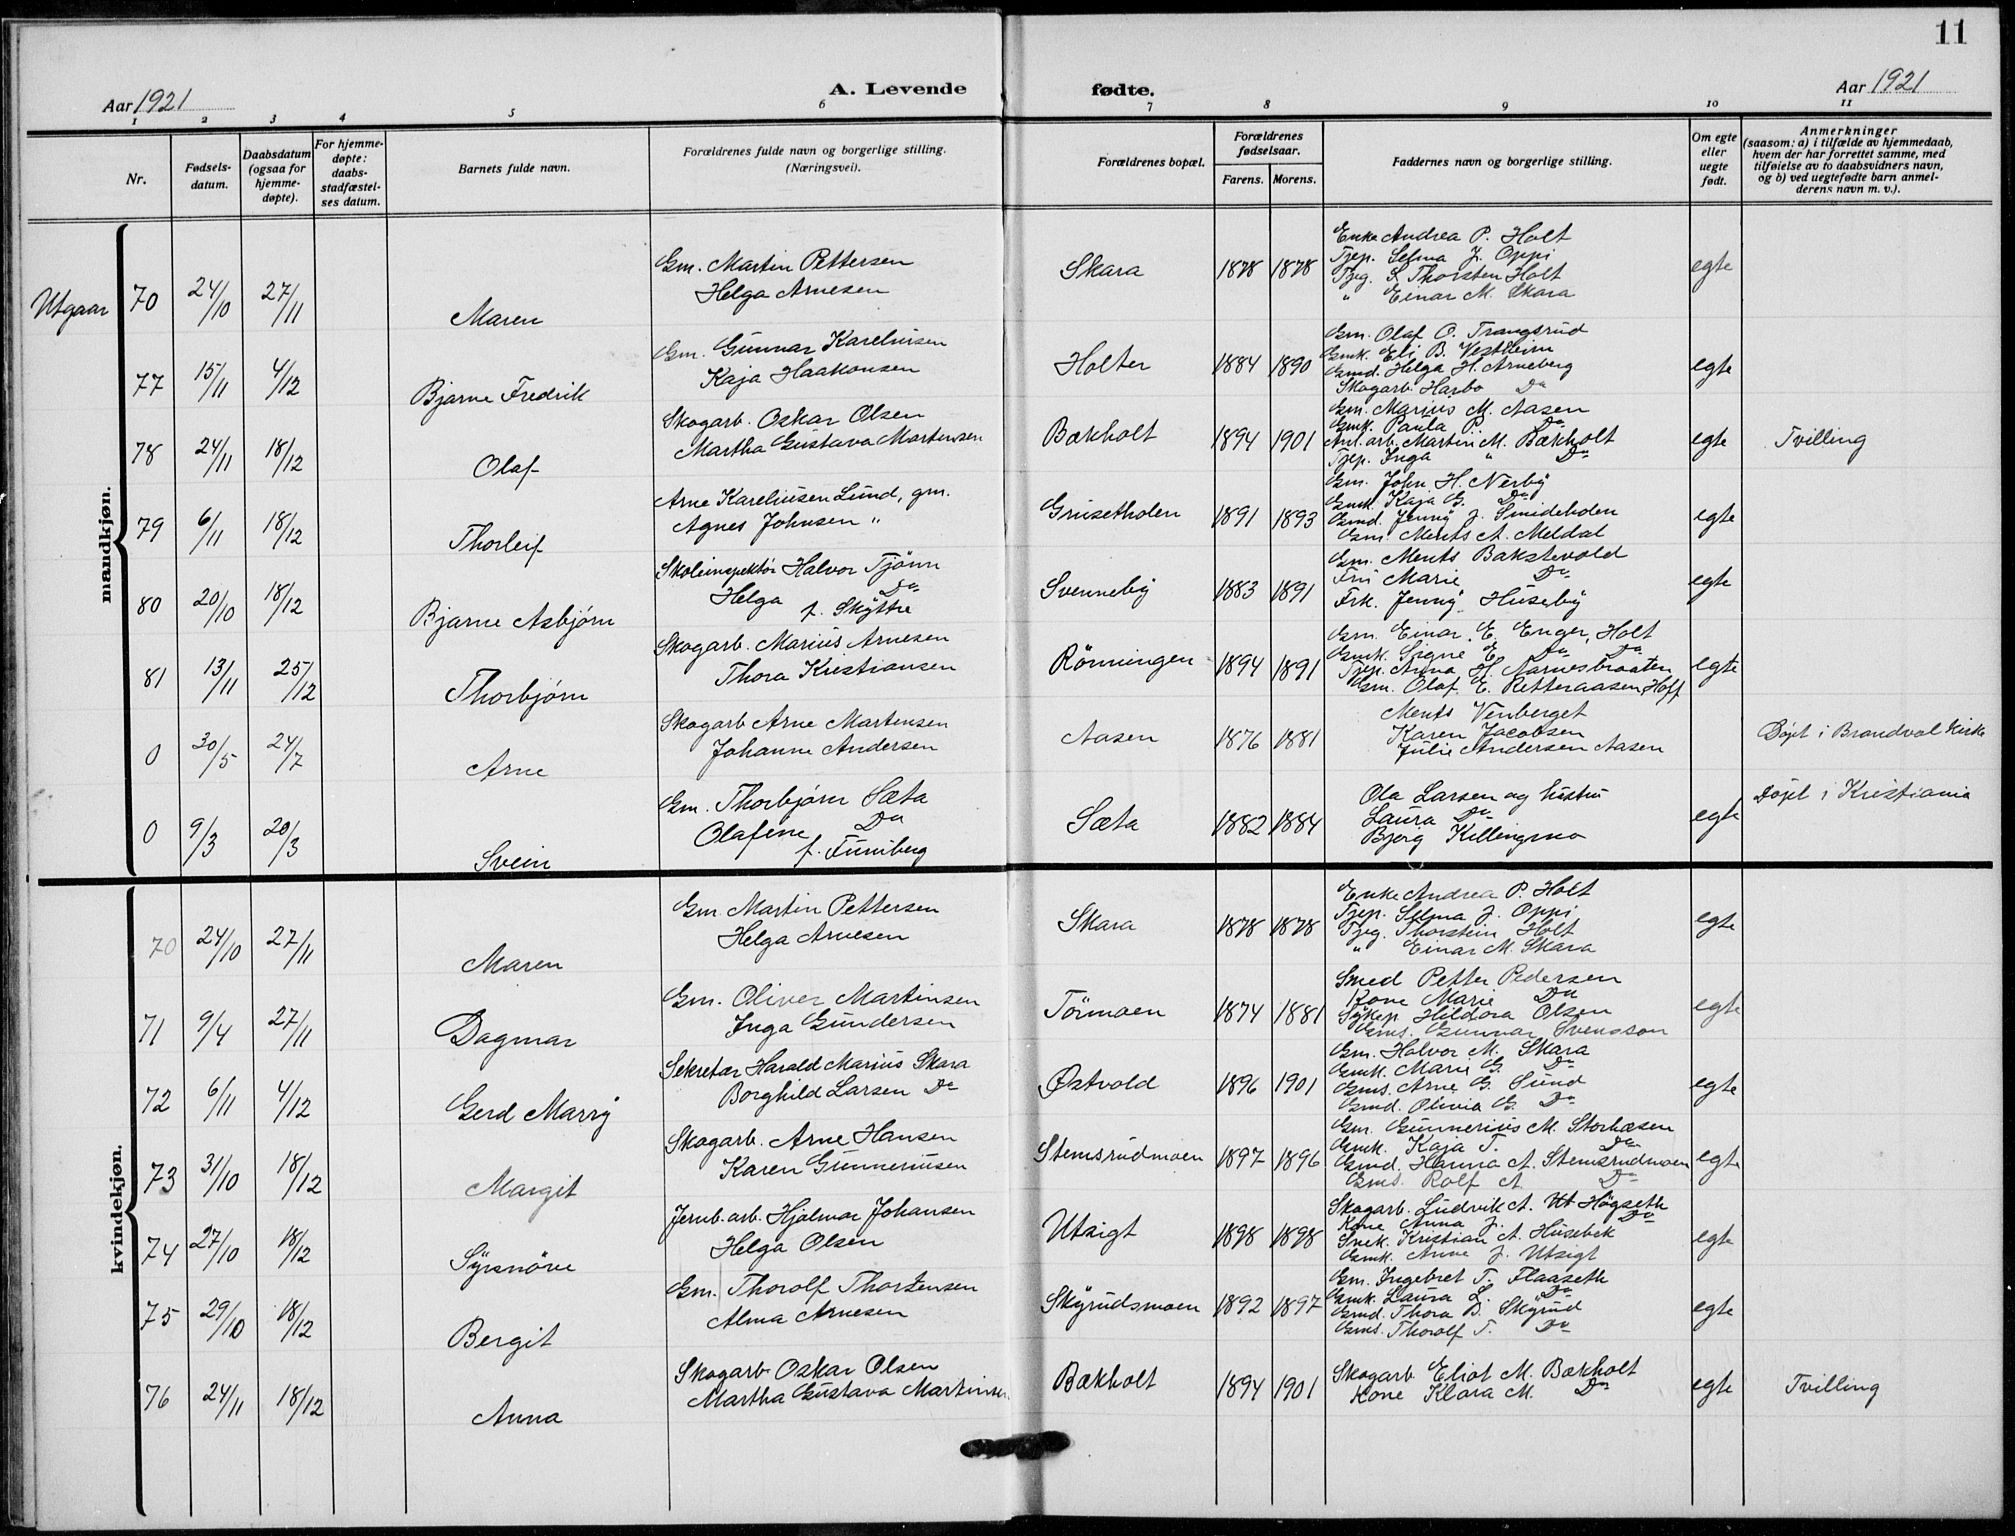 11
Aar 1921
A. Levende
fødte.
Aar 1921
1 2 3 4 5 6 7 8 9 10 11
Nr.
Fødsels-
datum.
Daabsdatum
(ogsaa for
hjemme-
døpte).
For hjemme-
døpte:
daabs-
stadfæstel-
ses datum.
Barnets fulde navn.
Forældrenes fulde navn og borgerlige stilling.
(Næringsvei).
Forældrenes bopæl.
Forældrenes
fødselsaar.
Farens. Morens.
Faddernes navn og borgerlige stilling.
Om egte
eller
uegte
født.
Anmerkninger
(saasom: a) i tilfælde av hjemmedaab,
hvem der har forrettet samme, med
tilføielse av to daabsvidners navn,
og b) ved uegtefødte barn anmel-
derens navn m. v.).
mandkjøn.
Utgaar 70 24/10 27/11 Maren
Gm. Martin Pettersen
Helga Arnesen
Skara 1878 1878
Enke Andrea P. Holt
Tjep. Selma J. Oppi
Tjeg. S. Thorsten Holt
" Einar M. Skara
egte
77 15/11 4/12 Bjarne Fredrik
Gm. Gunnar Kareliusen
Kaja Haakonsen
Holter 1884 1890
Gm. Olaf O. Trangsrud
Gmk. Eli B. Vestheim
Gmd. Helga H. Arneberg
Skogarb. Harbo Do
egte
78 24/11 18/12 Olaf
Skogarb. Oskar Olsen
Martha Gustava Martinsen
Bækholt 1894 1901
Gm. Marius M. Aasen
Gmk. Paula P. Do
Anl. arb. Martin M. Bækholt
Tjep. Inga " Do
egte Tvilling
79 6/11 18/12 Thorleif
Arne Kareliusen Lund, gm.
Agnes Johnsen "
Grusetholen 1891 1893
Gm. John H. Nerby
Gmk. Kaja G. Do
Gmd. Jenny J. Smideholen
Gm. Ments A. Meldal
egte
80 20/10 18/12 Bjarne Asbjørn
Skoleinspektør Halvor Tjønn
Helga Do
f. Skyttre
Svenneby 1883 1891
Gm. Ments Bakstevold
Fru Marie Do
Frk. Jenny Huseby
egte
81 13/11 25/12 Thorbjørn
Skogarb. Marius Arnesen
Thora Kristiansen
Rønningen 1894 1891
Gm. Einar E. Enger, Holt
Gmk. Signe E. Do Do
Tjep. Anna H. Aarnesbraaten
Gm. Olaf E. Retteraasen, Hoff
egte
0 30/5 24/7 Arne
Skogarb. Arne Martensen
Johanne Andersen
Aasen 1876 1881
Ments Venberget
Karen Jacobsen
Julie Andersen Aasen
Døpt i Brandval Kirke
0 9/3 20/3 Svein
Gm. Thorbjørn Sæta
Olafine Do
f. Furuberg
Sæta 1882 1884
Ola Larsen og hustru
Laura Do
Bjorg Killingmo
egte Døpt i Kristiania
kvindekjøn.
70 24/10 27/11 Maren
Gm Martin Pettersen
Helga Arnesen
Skara 1878 1878
Enke Andrea P. Holt
Tjep. Selma J. Oppi
Tjeg. Thorstein Holt
" Einar M. Skara
egte
71 9/4 27/11 Dagmar
Gm. Oliver Martinsen
Inga Gundersen
Tørmoen 1874 1881
Smed Petter Pedersen
Kone Marie Do
Sykep Hildora Olsen
Gms. Gunnar Svensson
egte
72 6/11 4/12 Gerd Marry
Sekretær Harald Marius Skara
Borghild Larsen Do
Østvold 1896 1901
Gm. Halvor M. Skara
Gmk. Marie G. Do
Gms. Arne G. Sund
Gmd. Olivia G. Do
egte
73 31/10 18/12 Margit
Skogarb. Arne Hansen
Karen Gunneriusen
Stemsrudmoen 1897 1896
Gm. Gunnerius M. Storbæsen
Gmk. Kaja T. Do
Gmd. Hanna A. Stemsrudmoen
Gms. Rolf A. Do
egte
74 27/10 18/12 Synnøve
Jernb. arb. Hjalmar Johansen
Helga Olsen
Utsigt 1898 1898
Skogarb. Ludvik A. Ut Høgseth
Kone Anna J. Do
Snek. Kristian A. Husebek
Gmk. Anne J. Utsigt
egte
75 29/10 18/12 Bergit
Gm. Thorolf Thorstensen
Alma Arnesen
Skyrudsmoen 1892 1897
Gm. Ingebret T. Flaaseth
Gmk. Laura L. Do
Gmd. Thora B. Skyrud
Gms. Thorolf T. Do
egte
76 24/11 18/12 Anna
Skogarb Oskar Olsen
Martha Gustava Martinsen
Bækholt 1894 1901
Skogarb Eliot M. Bækholt
Kone Klara M. Do
egte Tvilling